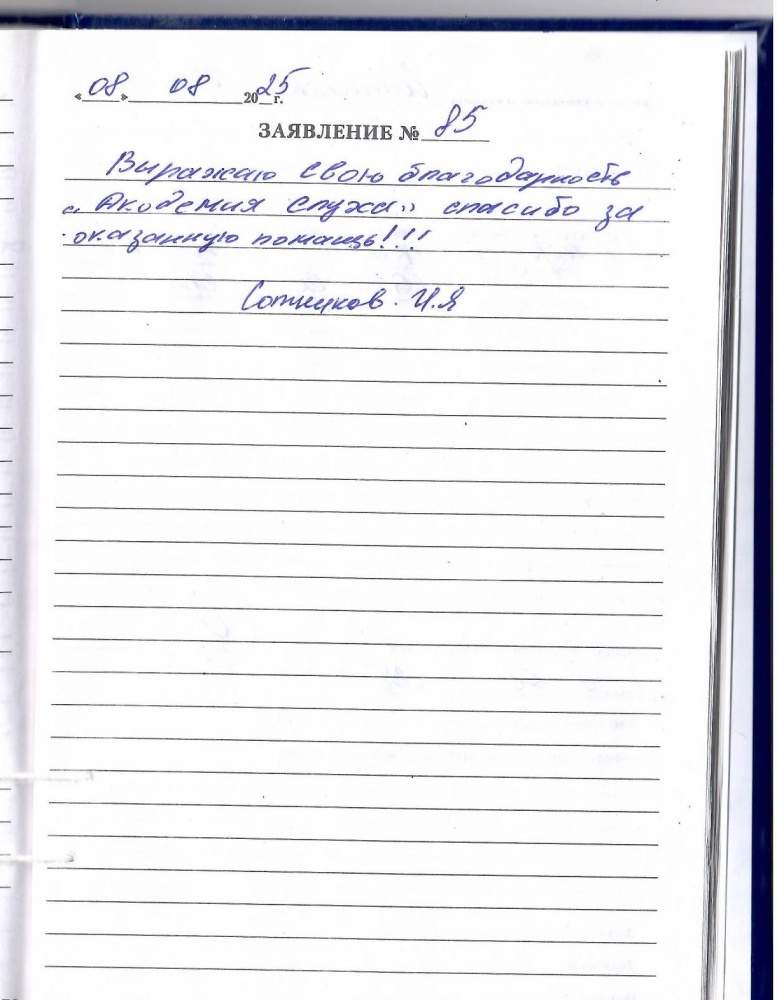 «08» 08 2025 г.
ЗАЯВЛЕНИЕ № 85
Выражаю свою благодарность
"Академия слуха" спасибо за
оказанную помощь!!!
Сотников. И.Я